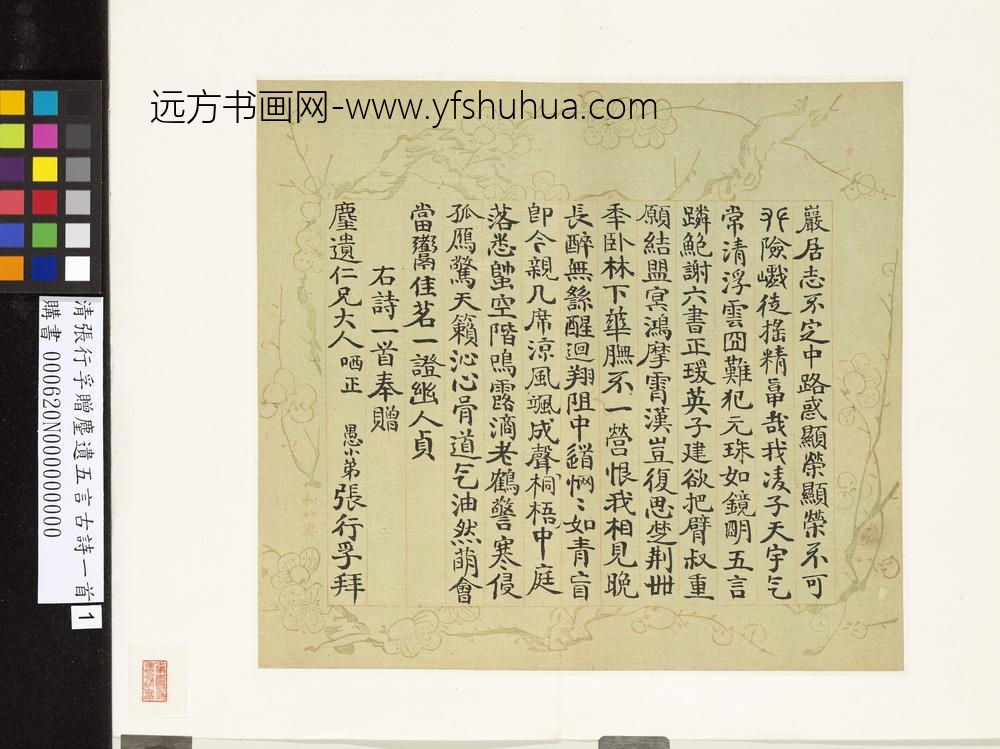 远方书画网-www.yfshuhua.com
巖居志不定中路惑顯榮顯榮不可
險巇徒搖精卓哉我凌子天宇气
常清浮雲囧難犯元珠如鏡朙五言
躋鮑謝六書正瑗英子建欲把臂叔重
願結盟冥鴻摩霄漢豈復思楚荆卌
年臥林下華膴不一營恨我相見晚
長醉無繇醒迴翔阻中道惘〻如青盲
即今親几席涼風颯成聲桐梧中庭
落悉蟀空階鳴露滴老鶴警寒侵
孤鴈驚天籟沁心骨道气油然萌會
當鬻佳茗一證幽人貞
右詩一首奉贈
麈遺仁兄大人哂正
愚小弟張行孚拜
清張行孚贈麈遺五言古詩一首
購書 000620N000000000
1